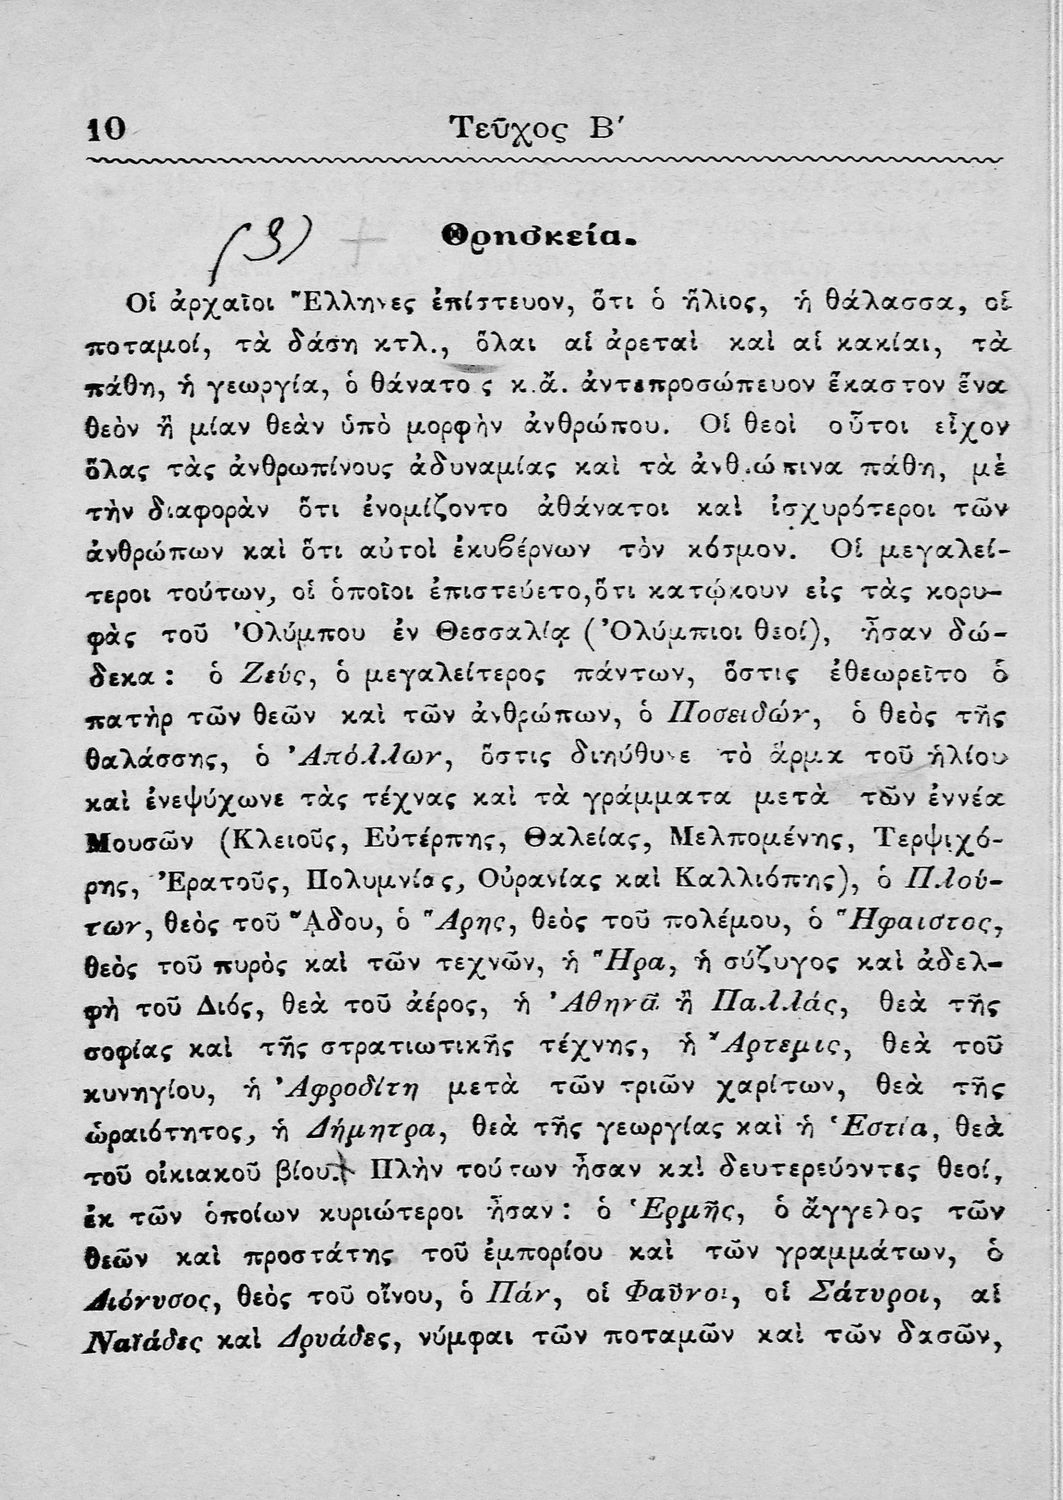 10
Τεῦχος Β΄
(3) +
Θρησκεία.
Οἱ ἀρχαῖοι Ἕλληνες ἐπίστευον, ὅτι ὁ ἥλιος, ἡ θάλασσα, οἱ
ποταμοί, τὰ δάση κτλ., ὅλαι αἱ ἀρεταὶ καὶ αἱ κακίαι, τὰ
πάθη, ἡ γεωργία, ὁ θάνατος κ.ἄ. ἀντεπροσώπευον ἕκαστον ἕνα
θεὸν ἢ μίαν θεὰν ὑπὸ μορφὴν ἀνθρώπου. Οἱ θεοὶ οὗτοι εἶχον
ὅλας τὰς ἀνθρωπίνους ἀδυναμίας καὶ τὰ ἀνθρώπινα πάθη, μὲ
τὴν διαφορὰν ὅτι ἐνομίζοντο ἀθάνατοι καὶ ἰσχυρότεροι τῶν
ἀνθρώπων καὶ ὅτι αὐτοὶ ἐκυβέρνων τὸν κόσμον. Οἱ μεγαλεί-
τεροι τούτων, οἱ ὁποῖοι ἐπιστεύετο, ὅτι κατῴκουν εἰς τὰς κορυ-
φὰς τοῦ Ὀλύμπου ἐν Θεσσαλίᾳ (Ὀλύμπιοι θεοί), ἦσαν δώ-
δεκα: ὁ Ζεύς, ὁ μεγαλείτερος πάντων, ὅστις ἐθεωρεῖτο ὁ
πατὴρ τῶν θεῶν καὶ τῶν ἀνθρώπων, ὁ Ποσειδών, ὁ θεὸς τῆς
θαλάσσης, ὁ Ἀπόλλων, ὅστις διηύθυνε τὸ ἅρμα τοῦ ἡλίου
καὶ ἐνεψύχωνε τὰς τέχνας καὶ τὰ γράμματα μετὰ τῶν ἐννέα
Μουσῶν (Κλειοῦς, Εὐτέρπης, Θαλείας, Μελπομένης, Τερψιχό-
ρης, Ἐρατοῦς, Πολυμνίας, Οὐρανίας καὶ Καλλιόπης), ὁ Πλού-
των, θεὸς τοῦ ᾍδου, ὁ Ἄρης, θεὸς τοῦ πολέμου, ὁ Ἥφαιστος,
θεὸς τοῦ πυρὸς καὶ τῶν τεχνῶν, ἡ Ἥρα, ἡ σύζυγος καὶ ἀδελ-
φὴ τοῦ Διός, θεὰ τοῦ ἀέρος, ἡ Ἀθηνᾶ ἢ Παλλάς, θεὰ τῆς
σοφίας καὶ τῆς στρατιωτικῆς τέχνης, ἡ Ἄρτεμις, θεὰ τοῦ
κυνηγίου, ἡ Ἀφροδίτη μετὰ τῶν τριῶν χαρίτων, θεὰ τῆς
ὡραιότητος, ἡ Δήμητρα, θεὰ τῆς γεωργίας καὶ ἡ Ἑστία, θεὰ
τοῦ οἰκιακοῦ βίου.+ Πλὴν τούτων ἦσαν καὶ δευτερεύοντες θεοί,
ἐκ τῶν ὁποίων κυριώτεροι ἦσαν: ὁ Ἑρμῆς, ὁ ἄγγελος τῶν
θεῶν καὶ προστάτης τοῦ ἐμπορίου καὶ τῶν γραμμάτων, ὁ
Διόνυσος, θεὸς τοῦ οἴνου, ὁ Πάν, οἱ Φαῦνοι, οἱ Σάτυροι, αἱ
Ναϊάδες καὶ Δρυάδες, νύμφαι τῶν ποταμῶν καὶ τῶν δασῶν,